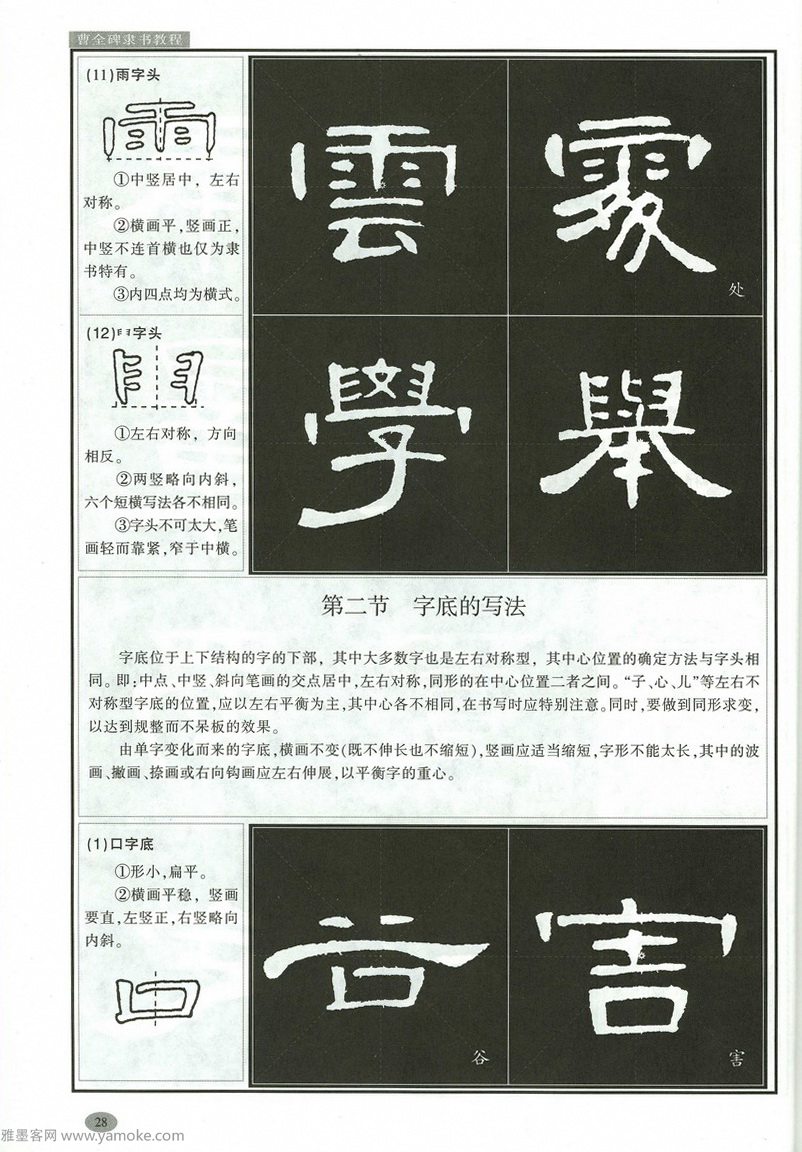 曹全碑隶书教程
(11)雨字头
①中竖居中，左右
对称。
②横画平，竖画正，
中竖不连首横也仅为隶
书特有。
③内四点均为横式。
雲
处
(12)字头
①左右对称，方向
相反。
②两竖略向内斜，
六个短横写法各不相同。
③字头不可太大，笔
画轻而靠紧，窄于中横。
學 舉
第二节 字底的写法
字底位于上下结构的字的下部，其中大多数字也是左右对称型，其中心位置的确定方法与字头相
同。即：中点、中竖、斜向笔画的交点居中，左右对称，同形的在中心位置二者之间。“子、心、儿”等左右不
对称型字底的位置，应以左右平衡为主，其中心各不相同，在书写时应特别注意。同时，要做到同形求变，
以达到规整而不呆板的效果。
由单字变化而来的字底，横画不变(既不伸长也不缩短)，竖画应适当缩短，字形不能太长，其中的波
画、撇画、捺画或右向钩画应左右伸展，以平衡字的重心。
(1)口字底
①形小，扁平。
②横画平稳，竖画
要直，左竖正，右竖略向
内斜。
口
谷 害
谷
害
28
雅墨客网 www.yamoke.com